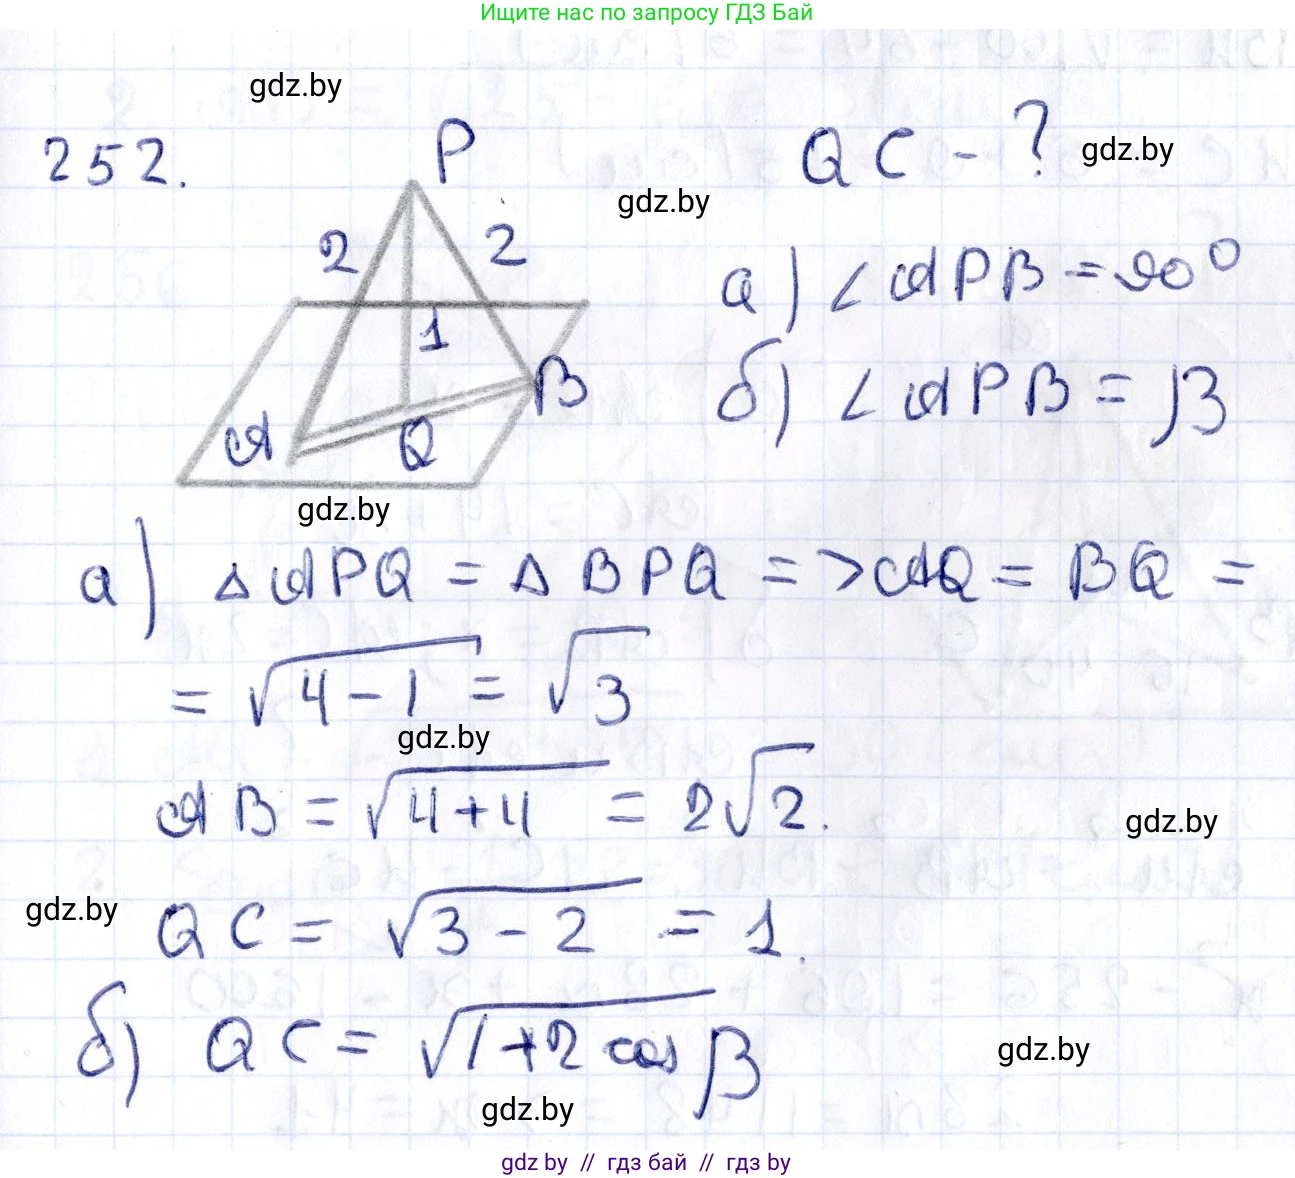 Ищите нас по запросу ГДЗ Бай
gdz.by
252.
P
QC - ?
gdz.by
gdz.by
2
2
а) ∠APB = 90°
1
б) ∠APB = β
B
A
Q
gdz.by
а) △APQ = △BPQ => AQ = BQ =
= √4-1 = √3
gdz.by
AB = √4+4 = 2√2.
gdz.by
gdz.by
QC = √3-2 = 1.
б) QC = √1+2 cos β
gdz.by
gdz.by
gdz.by // гдз бай // гдз by